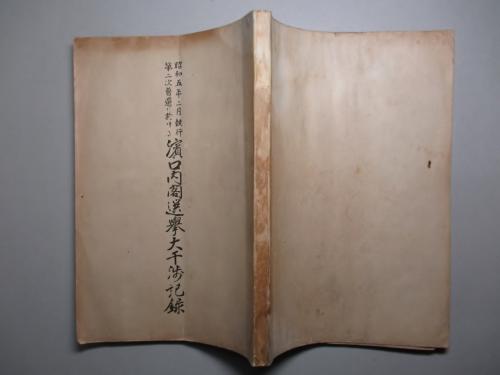 昭和五年二月執行
第二次普選ニ於ケル
濱口内閣選擧大干渉記録